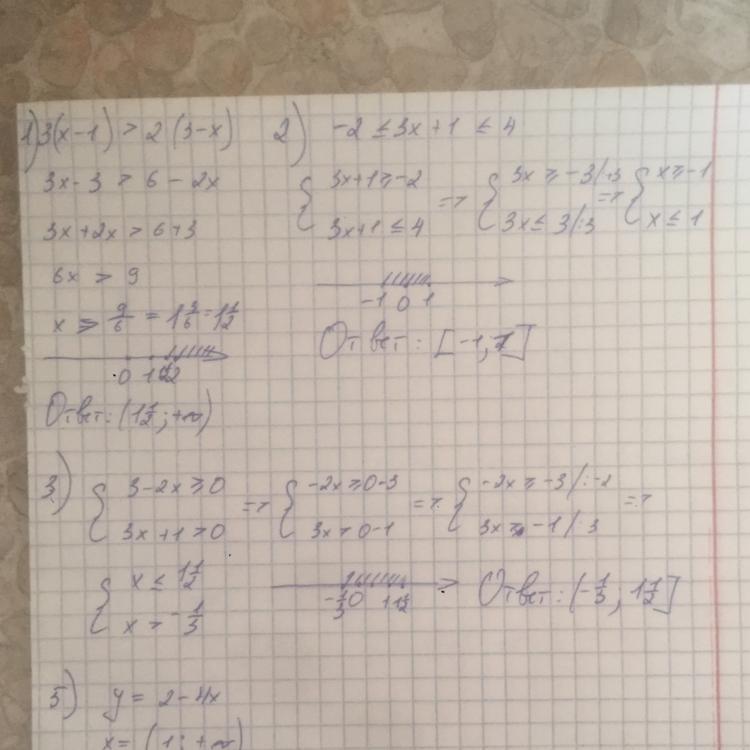 1) 3(x-1) > 2(3-x)
3x-3 > 6-2x
3x+2x > 6+3
6x > 9
x > 9/6 = 1 3/6 = 1 1/2
0 1 1 1/2 2
Ответ: (1 1/2; +∞)
2) -2 ≤ 3x+1 ≤ 4
{ 3x+1 ≥ -2 => { 3x ≥ -3 /:3 => { x ≥ -1
3x+1 ≤ 4 3x ≤ 3 /:3 x ≤ 1
-1 0 1
Ответ: [-1; 1]
3.) { 3-2x ≥ 0 => { -2x ≥ 0-3 => { -2x ≥ -3 /:-2 =>
3x+1 > 0 3x > 0-1 3x > -1 /:3
{ x ≤ 1 1/2
x > -1/3
-1/3 0 1 1 1/2
Ответ: (-1/3; 1 1/2]
5) y = 2-4x
x = (1; +∞)